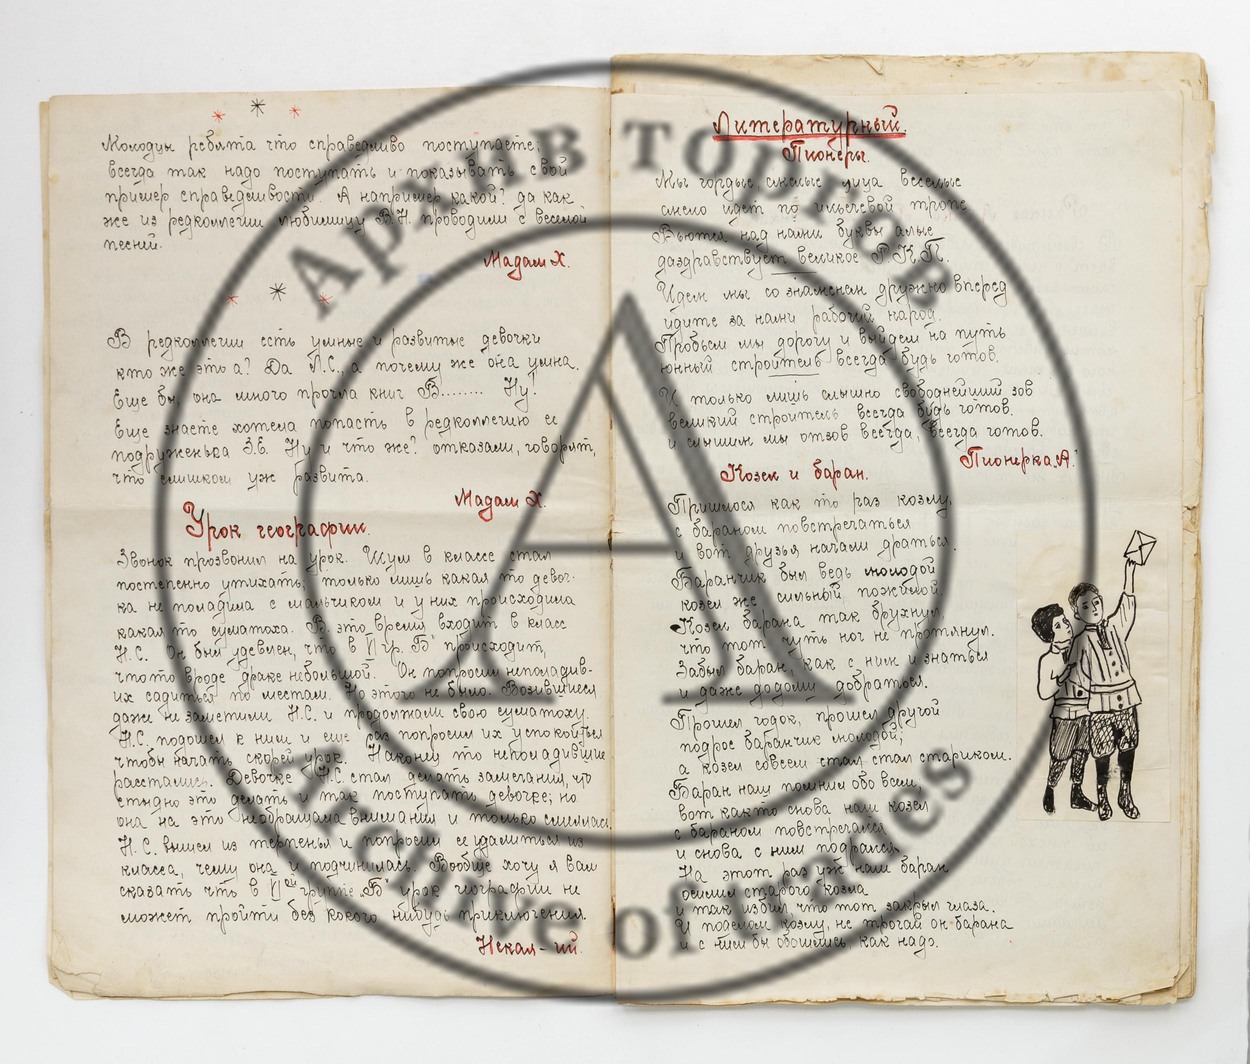 Молодцы ребята что справедливо поступаете,
всегда так надо поступать и показывать свой
пример справедливости. А например какой? да как
же из редколлегии любимицу В.Н. проводили с веселой
песней.
Мадам Х.
В редколлегии есть умные и развитые девочки
кто же это а? Да Л.С., а почему же она умна.
Еще бы она много прочла книг В........ Ну!
Еще знаете хотела попасть в редколлегию ее
подруженька З.Е. Ну и что же? отказали, говорят,
что слишком уж развита.
Мадам Х.
Урок географии.
Звонок прозвонил на урок. Шум в классе стал
постепенно утихать, только лишь какая то девоч-
ка не поладила с мальчиком и у них происходила
какая то суматоха. В это время входит в класс
Н.С. Он был удивлен, что в II гр. "Б" происходит,
чтото вроде драке небольшой. Он попросил неполадив-
их садиться по местам. Но этого не было. Возившиеся
даже не заметили Н.С. и продолжали свою суматоху.
Н.С. подошел к ним и еще раз попросил их успокоиться
чтобы начать скорей урок. Наконец то неполадившие
расстались. Девочке Н.С. стал делать замечания, что
стыдно это делать и так поступать девочке; но
она на это необращала внимания и только смеялась
Н.С. вышел из терпенья и попросил ее удалиться из
класса, чему она и подчинилась. Вообще хочу я вам
сказать что в II группе "Б" урок географии не
может пройти без кокого нибудь приключения.
Некая-ий.
Литературный.
Пионеры.
Мы гордые, смелые лица веселые
смело идет по ильичевой тропе
Вьются над нами буквы алые
даздравствует великое Р.К.П.
Идем мы со знаменем дружно вперед
идите за нами рабочий народ.
Пробьем мы дорогу и выйдем на путь
юнный строитель всегда будь готов.
И только лишь слышно свободнейший зов
великий строитель всегда будь готов.
и слышим мы отзов всегда, всегда готов.
Пионерка А.
Козел и баран.
Пришлося как то раз козлу,
с бараном повстречаться
и вот друзья начали драться.
Баранчик был ведь молодой
козел же сильный, пожилой.
Козел барана так брухнул
что тот чуть ног не протянул.
Забыл баран, как с ним и знаться
и даже додому добраться.
Прошел годок, прошел другой
подрос баранчик молодой;
а козел совсем стал стал стариком.
Баран наш помнил обо всем,
вот както снова наш козел
с бараном повстречался
и снова с ним подрался
На этот раз уж наш баран
осилил старого козла
и так избил что тот закрыл глаза.
И поделом козлу, не трогай он барана
и с ним бы обошлись, как надо.
Архив томиров
Archive of